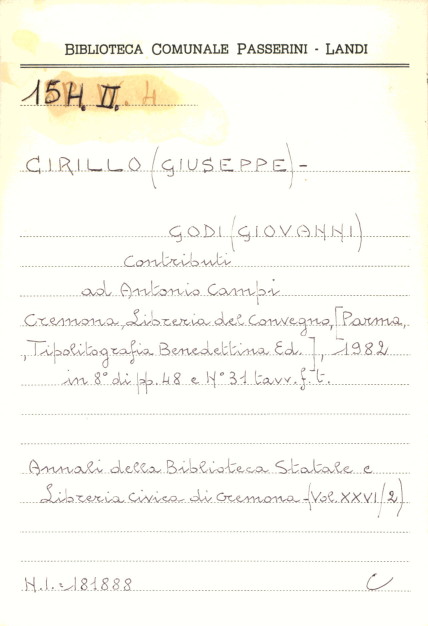 BIBLIOTECA COMUNALE PASSERINI - LANDI
15H. II. 4
CIRILLO (GIUSEPPE) -
GODI (GIOVANNI)
Contributi
ad Antonio Campi
Cremona, Libreria del Convegno, [Parma,
, Tipolitografia Benedettina Ed.], 1982
in 8° di pp. 48 e N° 31 tavv. f. t.
Annali della Biblioteca Statale e
Libreria Civica di Cremona - (Vol. XXVI/2)
N.I. = 181888
C